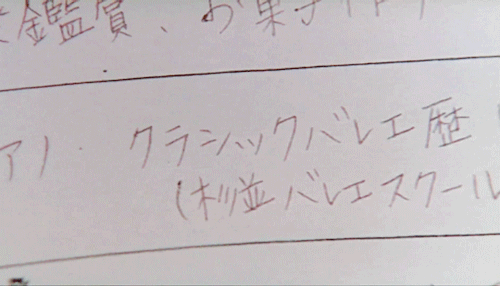 鑑賞、お菓子作り
ア)・クラシックバレエ歴
(杉並バレエスクール